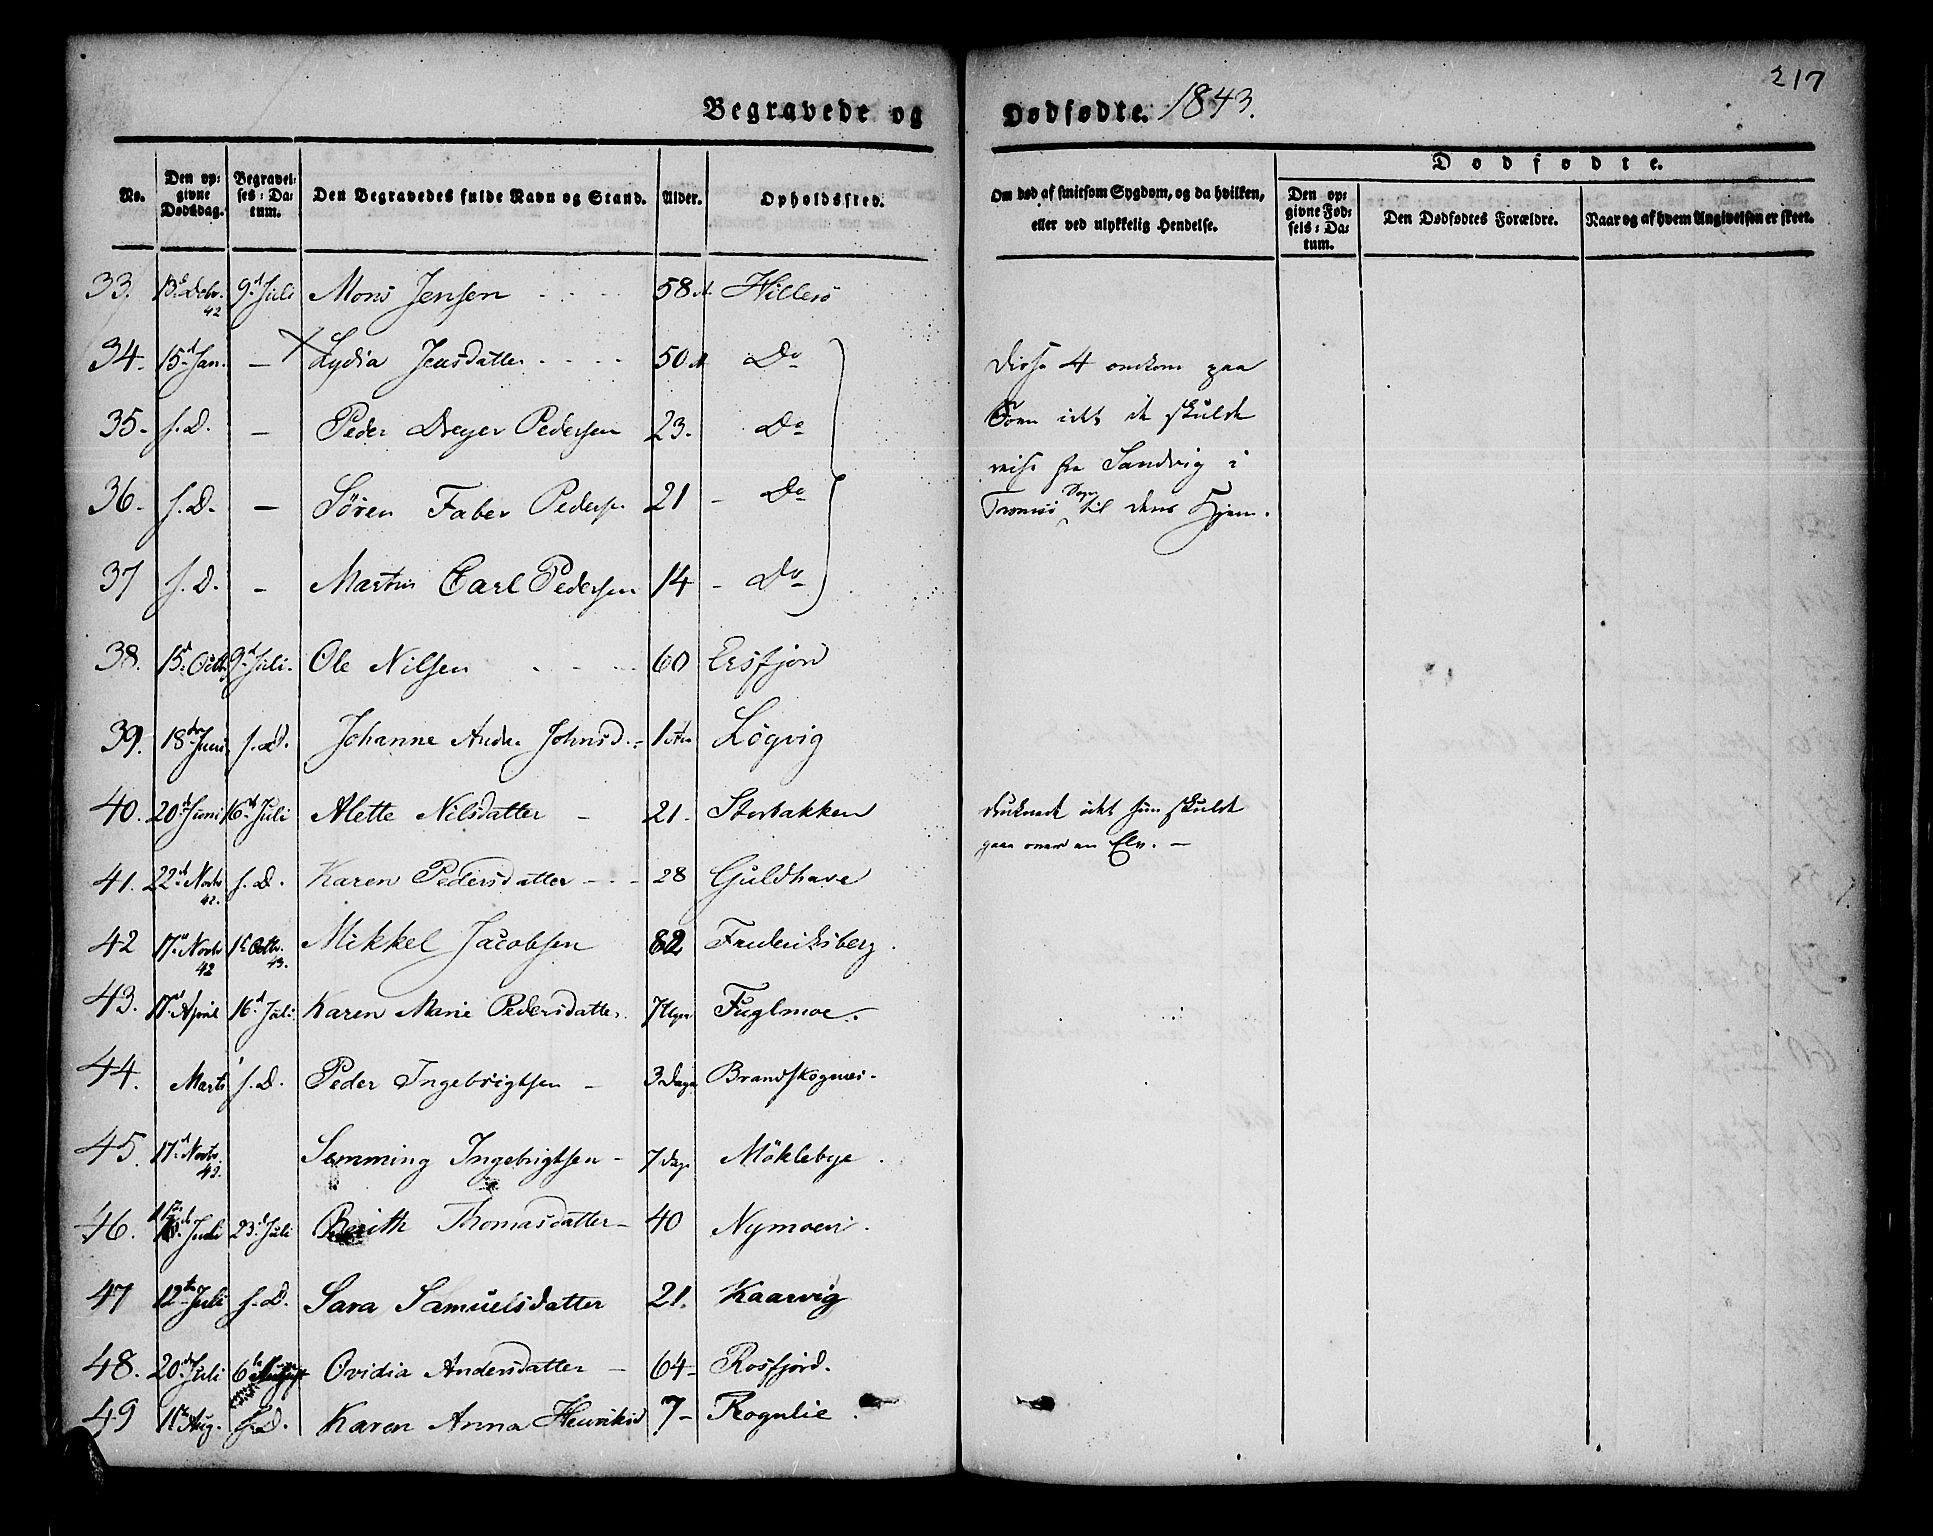 217
Begravede og Dødfødte. 1843.
No. Den opgivne Dødsdag. Begravelses-Datum. Den Begravedes fulde Navn og Stand. Alder. Opholdssted. Om død af smitsom Sygdom, og da hvilken, eller ved ulykkelig Hendelse. Dødfødte. Den opgivne Fødsels-Datum. Den Dødfødtes Forældre. Naar og af hvem Angivelsen er skeet.
33. 13d Debr. 42 9d Juli Mons Jensen 58 A. Hillesö
34. 15d Jan. — Lydia Jensdatter 50 A Do Disse 4 omkom paa
35. s. D. — Peder Dreyer Pedersen 23. Do Söen idet de skulde
36. s. D. — Sören Faber Peders. 21 - Do reise fra Sandvig i
Tromsö Sogn til deres Hjem.
37 s. D. - Martin Carl Pedersen 14 - Do
38. 15d Octb. 9d Juli. Ole Nilsen 60 Ersfjord
39. 18de Juni s. D. Johanne Andr. Johnsd. 1 Aar Lögvig
40. 20d Juni 16d Juli Alette Nilsdatter - 21. Storbakken druknede idet hun skulde
gaa over en Elv. —
41. 22d Novbr 42. s. D. Karen Pedersdatter 28 Guldhave
42 17d Novbr 42 1ste Octb. 43. Mikkel Jacobsen 82 Frederiksberg.
43. 17d April 16d Juli Karen Marie Pedersdatter. 7 Uger Fuglmoe.
44. Marts s. D. Peder Ingebrigtsen - 3 Dage Brandskognes.
45. 17d Novbr. 42. Semming Ingebrigtsen - 7 Dage Möklebye.
46. Juli 23d Juli Berith Thomasdatter - 40 Nymoen.
47 12te Juli s. D. Sara Samuelsdatter 21. Kaarvig
48. 20de Juli 6te August Ovidia Andersdatter - 64 - Rosfjord.
49 10de Aug. s. D. Karen Anna Henriksd 7 - Rognlie.